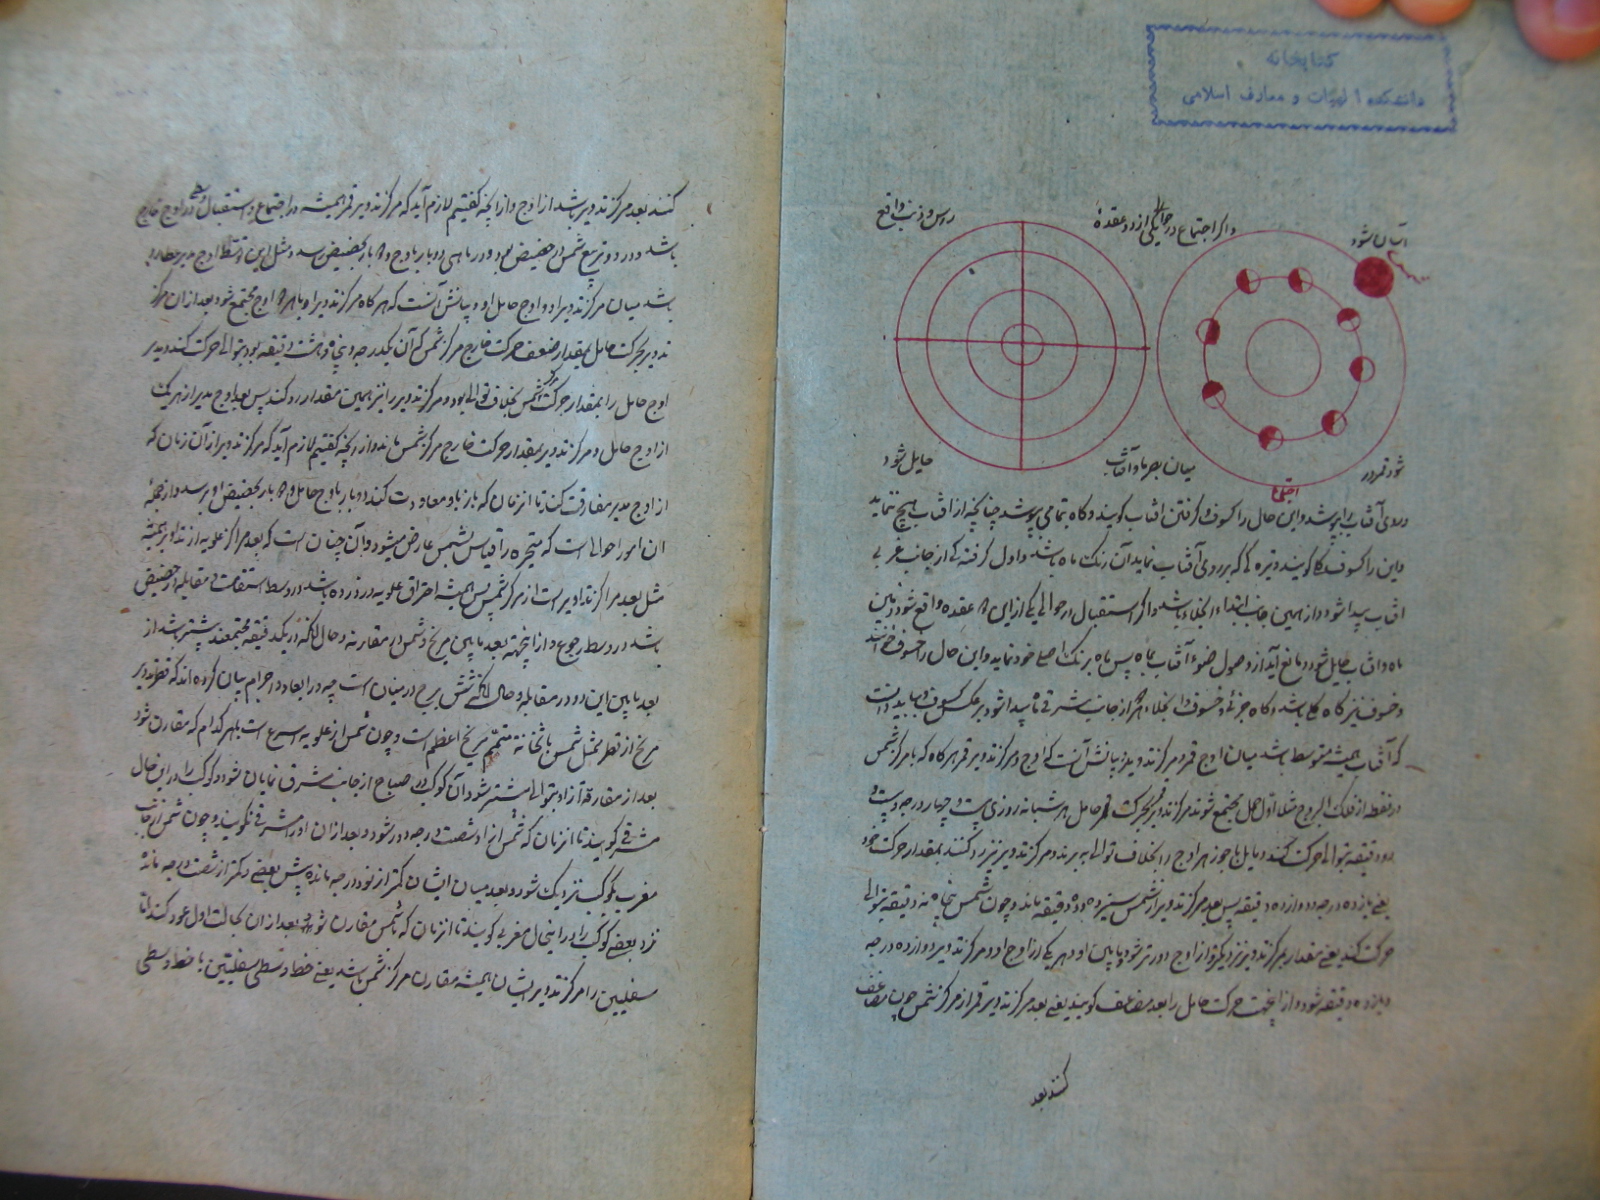 کتابخانه
دانشکده الهیات و معارف اسلامی
آسان شود
واگر اجتماع در حوالی یکی از دو عقدهٔ
راس و ذنب واقع
شود قمر در
میان بصر ما و آفتاب
حایل شود
اجتماع
و روی آفتاب را بپوشد و این حال را کسوف و گرفتن آفتاب گویند و گاه تمامی بپوشد چنانچه از آفتاب هیچ ننماید
و این را کسوف کلی گویند و تیرهٔ که بر روی آفتاب نماید آن رنگ ماه باشد و اول گرفتن از جانب غربی
آفتاب پیدا شود و از همین جانب ابتداء انجلاء باشد و اگر استقبال در حوالی یکی از این دو عقده واقع شود زمین
ماه و آفتاب حایل شود و مانع آید از وصول ضوء آفتاب بماه پس ماه برنگ اصلی خود نماید و این حال را خسوف خوانند
و خسوف نیز گاه کلی باشد و گاه جزئی و خسوف و انجلاء قمر از جانب شرقی پیدا شود بر عکس کسوف و بباید دانست
که آفتاب همیشه متوسط باشد میان اوج قمر و مرکز تدویر و بیانش آنست که اوج و مرکز تدویر قمر هرگاه که با مرکز شمس
در نقطه از فلک البروج مثلا اول حمل مجتمع شوند مرکز تدویر بحرکت حامل هر شبانه روزی بیست و چهار درجه و بیست و
دو دقیقه بتوالی حرکت کند و مایل با جوزهر اوج را بخلاف توالی ببرند و مرکز تدویر نیز رد کنند بمقدار حرکت خود
یعنی یازده درجه و دوازده دقیقه پس بعد مرکز تدویر از شمس سیزده درجه و ده دقیقه ماند و چون شمس پنجاه و نه دقیقه بتوالی
حرکت کند یعنی مقدار بمرکز تدویر نزدیکتر و از اوج دورتر شود و مابین او و هر یکی از اوج و مرکز تدویر دوازده درجه
و یازده دقیقه شود و از اینجهت حرکت حامل را بعد مضاعف گویند یعنی بعد مرکز تدویر قمر از مرکز شمس چون مضاعف
کنند بعد
کنند بعد مرکز تدویر باشد از اوج و از آنچه گفتیم لازم آید که مرکز تدویر قمر همیشه در اجتماع و استقبال در اوج خارج
باشد و در دو تربیع شمس در حضیض بود و در ماهی دو بار باوج و دو بار بحضیض رسد و مثل این توسط اوج مدیر عطارد
باشد میان مرکز تدویر او و اوج حامل او و بیانش آنست که هرگاه مرکز تدویر او با هر دو اوج مجتمع شود بعد از آن مرکز
تدویر بحرکت حامل بمقدار ضعف حرکت خارج مرکز شمس که آن یکدرجه و پنجاه و هشت دقیقه بود بتوالی حرکت کند و مدیر
اوج حامل را بمقدار حرکت مرکز شمس بخلاف توالی برد و مرکز تدویر را نیز همین مقدار رد کند پس بعد اوج مدیر از هر یک
از اوج حامل و مرکز تدویر بمقدار حرکت خارج مرکز شمس ماند و از آنچه گفتیم لازم آید که مرکز تدویر از آن زمان که
از اوج مدیر مفارقت کند تا آن زمان که باز باو معاودت کند دو بار باوج حامل و دو بار بحضیض او برسد و از جملهٔ
آن امور احوالی است که متحیره را قیاس بشمس عارض میشود و آن چنان است که بعد مراکز علویه از تداویر همیشه
مثل بعد مراکز تداویر است از مرکز شمس پس همیشه احتراق علویه در ذروه باشد در وسط استقامت و مقابله در حضیض
باشد در وسط رجوع و از اینجهت بعد مابین مریخ و شمس در مقارنه و حال آنکه در یکدقیقه مجتمعند بیشتر باشد از
بعد مابین این دو در مقابله و حال آنکه شش برج در میان است چه در ابعاد و اجرام بیان کرده اند که قطر تدویر
مریخ از قطر ممثل شمس با ثخانة متمم مریخ اعظم است و چون شمس از علویه اسرع است بهر کدام که مقارن شود
بعد از مقارنه از او بتوالی پیشتر شود و آن کوکب در صباح از جانب شرق نمایان شود و کوکب را در این حال
مشرقی گویند تا آن زمان که شمس از او شصت درجه دور شود و بعد از آن او را مشرقی نگویند و چون شمس از جانب
مغرب بکوکب نزدیک شود و بعد میان ایشان کمتر از نود درجه ماند پیش بعضی و کمتر از شصت درجه ماند
نزد بعضی کوکب را در اینحال مغربی گویند تا آن زمان که بشمس مقارن شود و بعد از آن بحالت اول عود کند اما
سفلیین را مرکز تدویر ایشان همیشه مقارن مرکز شمس باشد یعنی خط وسطی سفلیین با خط وسطی